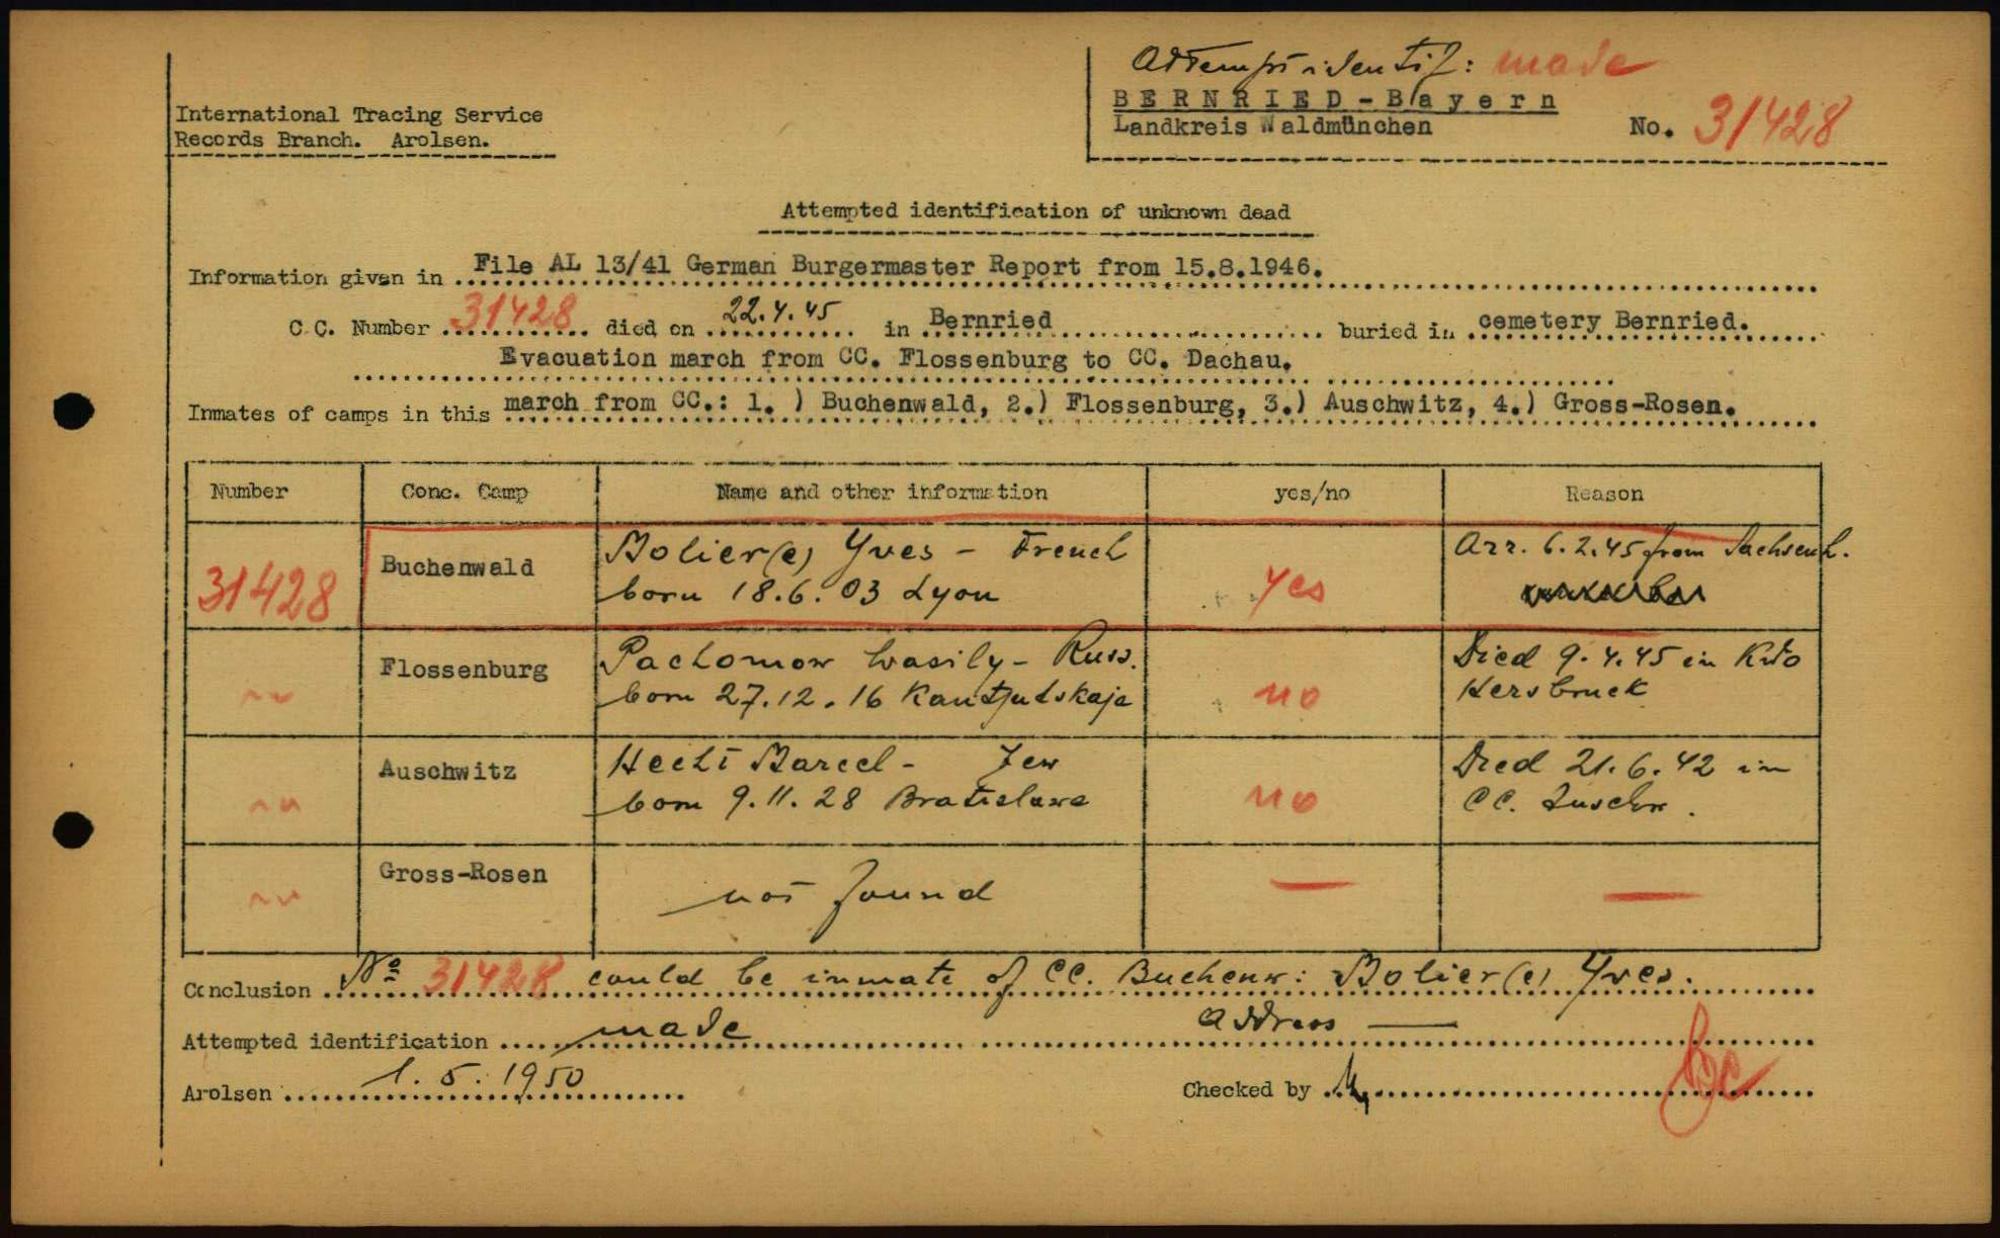 Attempt identif: made
International Tracing Service
Records Branch. Arolsen.
BERNRIED-Bayern
Landkreis Waldmünchen
No. 31428
Attempted identification of unknown dead
Information given in File AL 13/41 German Burgermaster Report from 15.8.1946.
C.C. Number 31428 died on 22.4.45 in Bernried buried in cemetery Bernried.
Evacuation march from CC. Flossenburg to CC. Dachau.
Inmates of camps in this march from CC.: 1. ) Buchenwald, 2.) Flossenburg, 3.) Auschwitz, 4.) Gross-Rosen.
Number Conc. Camp Name and other information yes/no Reason
31428 Buchenwald Molier(e) Yves - French yes Arr. 6.2.45 from Sachsenh.
born 18.6.03 Lyon
Flossenburg Pachomow Wasily - Russ. no Died 9.4.45 in Kdo
born 27.12.16 Hersbruck
Auschwitz Hecht Marcel - Jew no Died 21.6.42 in
born 9.11.28 Bratislawa CC. Auschw.
Gross-Rosen not found — —
Conclusion No 31428 could be inmate of CC. Buchenw: Molier(e) Yves.
Attempted identification made Address —
Arolsen 1.5.1950 Checked by